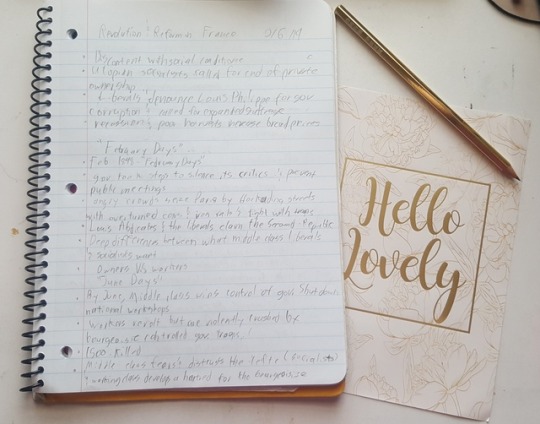 Revolution & Reform in France
Discontent with social conditions
Utopian socialists called for end of private
ownership
Liberals denounce Louis Philippe for gov
corruption & need for expanded suffrage
recessions & poor harvests increase bread prices
"February Days"
Feb "February Days"
gov took steps to silence its critics & prevent
public meetings
angry crowds seize Paris by barricading streets
with overturned & fight with troops
Louis Abdicates & the liberals claim the Second Republic
Deep difference between what middle class liberals
& socialists want
Owners Vs workers
"June Days"
By June, middle class wins control of gov & Shut down
national workshops
workers revolt but are violently crushed by
bourgeoisie controlled gov troops
1500 killed
Middle class fears & distrusts the left (socialists)
& working class develop a hatred for the bourgeoisie
Hello
Lovely